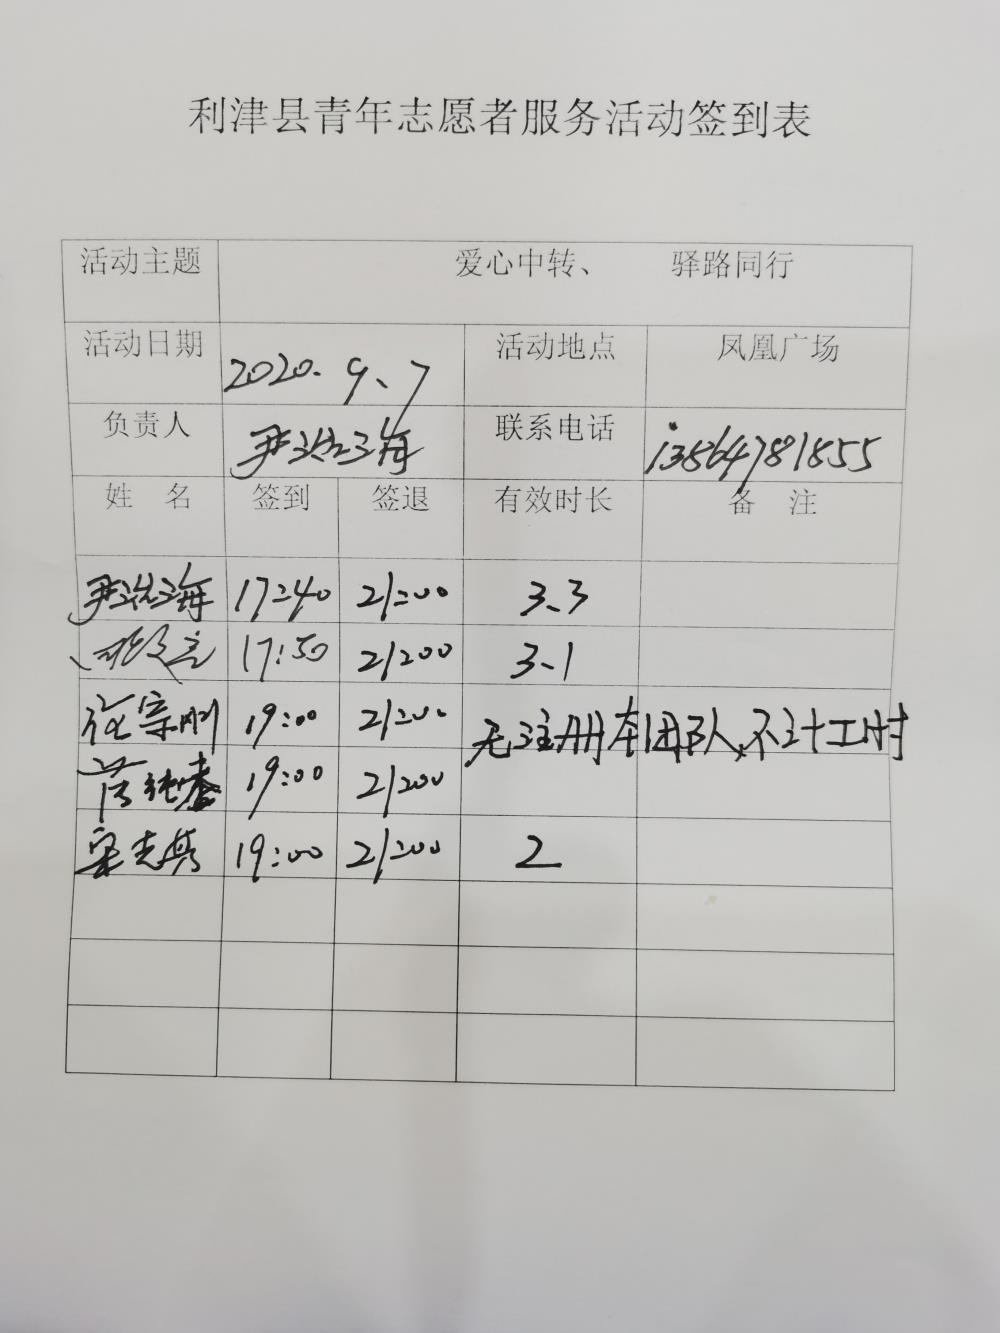 利津县青年志愿者服务活动签到表
活动主题 爱心中转、 驿路同行
活动日期 2020.9、7 活动地点 凤凰广场
负责人 尹洪海 联系电话 13864781855
姓 名 签到 签退 有效时长 备 注
尹洪海 17:40 21:00 3、3
17:50 21:00 3、1
张宗刚 19:00 21:00 无注册本团队,不计工时
19:00 21:00
19:00 21:00 2